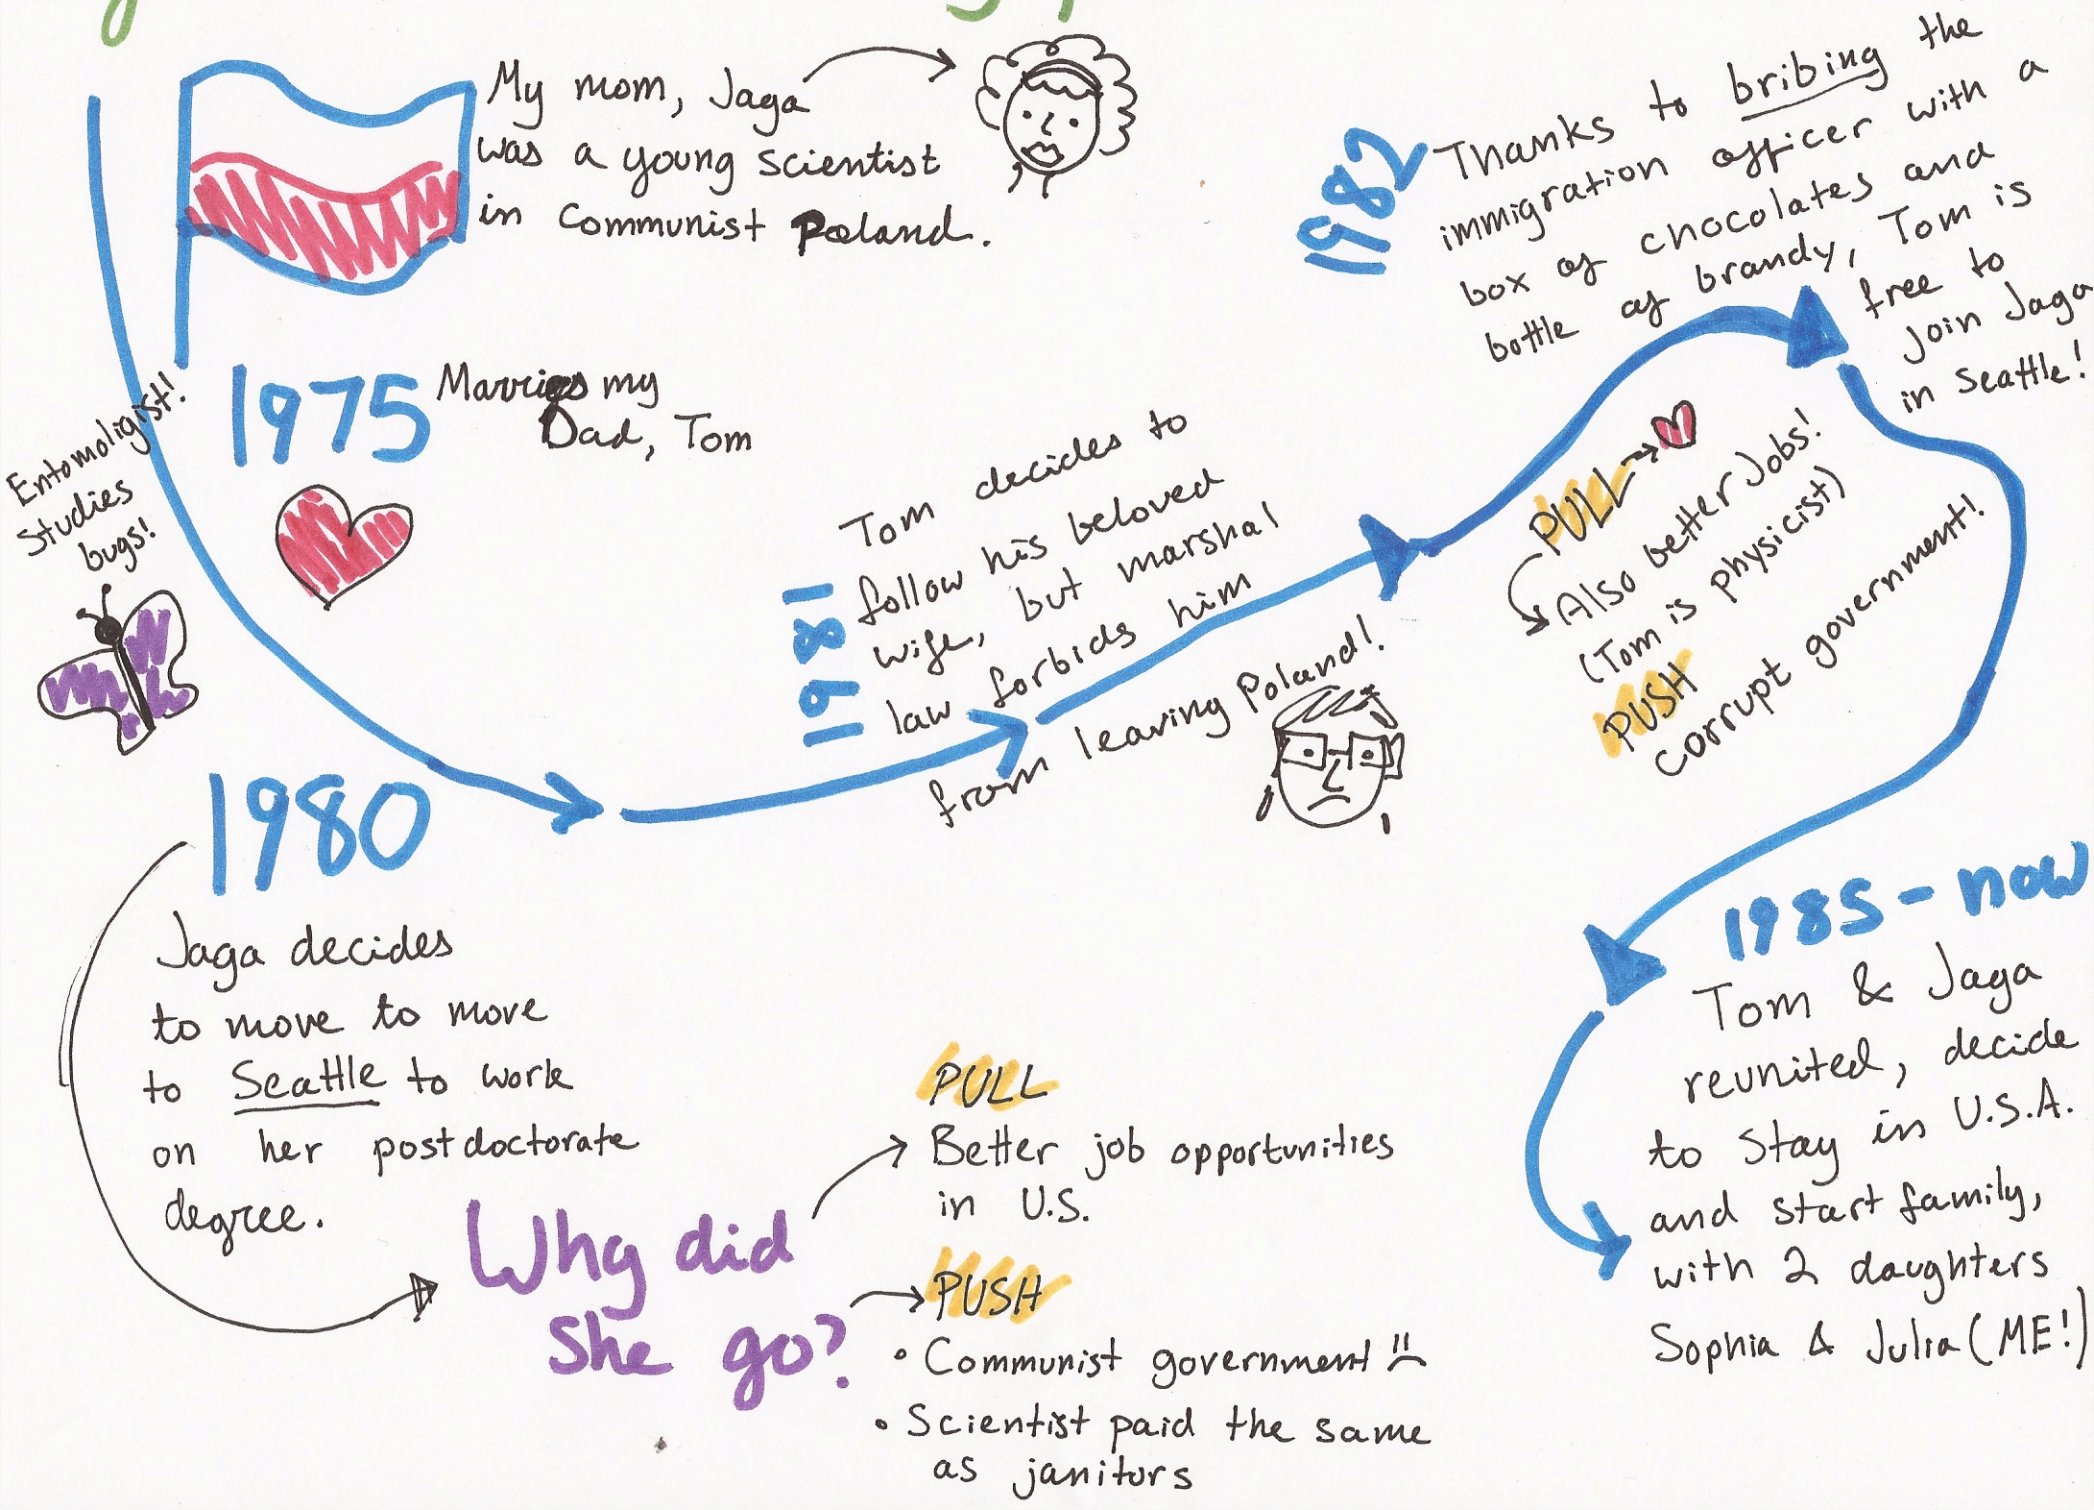 My mom, Jaga
was a young scientist
in Communist Poland.
Entomoligist!
Studies
bugs!
1975
Marries my
Dad, Tom
1980
Jaga decides
to move to move
to Seattle to work
on her postdoctorate
degree.
Why did
She go?
PULL
Better job opportunities
in U.S.
PUSH
• Communist government
• Scientist paid the same
as janitors
1981
Tom decides to
follow his beloved
wife, but marshal
law forbids him
from leaving Poland!
1982
Thanks to bribing the
immigration officer with a
box of chocolates and
bottle of brandy, Tom is
free to
join Jaga
in Seattle!
PULL
Also better Jobs!
(Tom is physicist)
PUSH
Corrupt government!
1985-now
Tom & Jaga
reunited, decide
to stay in U.S.A.
and start family,
with 2 daughters
Sophia & Julia (ME!)